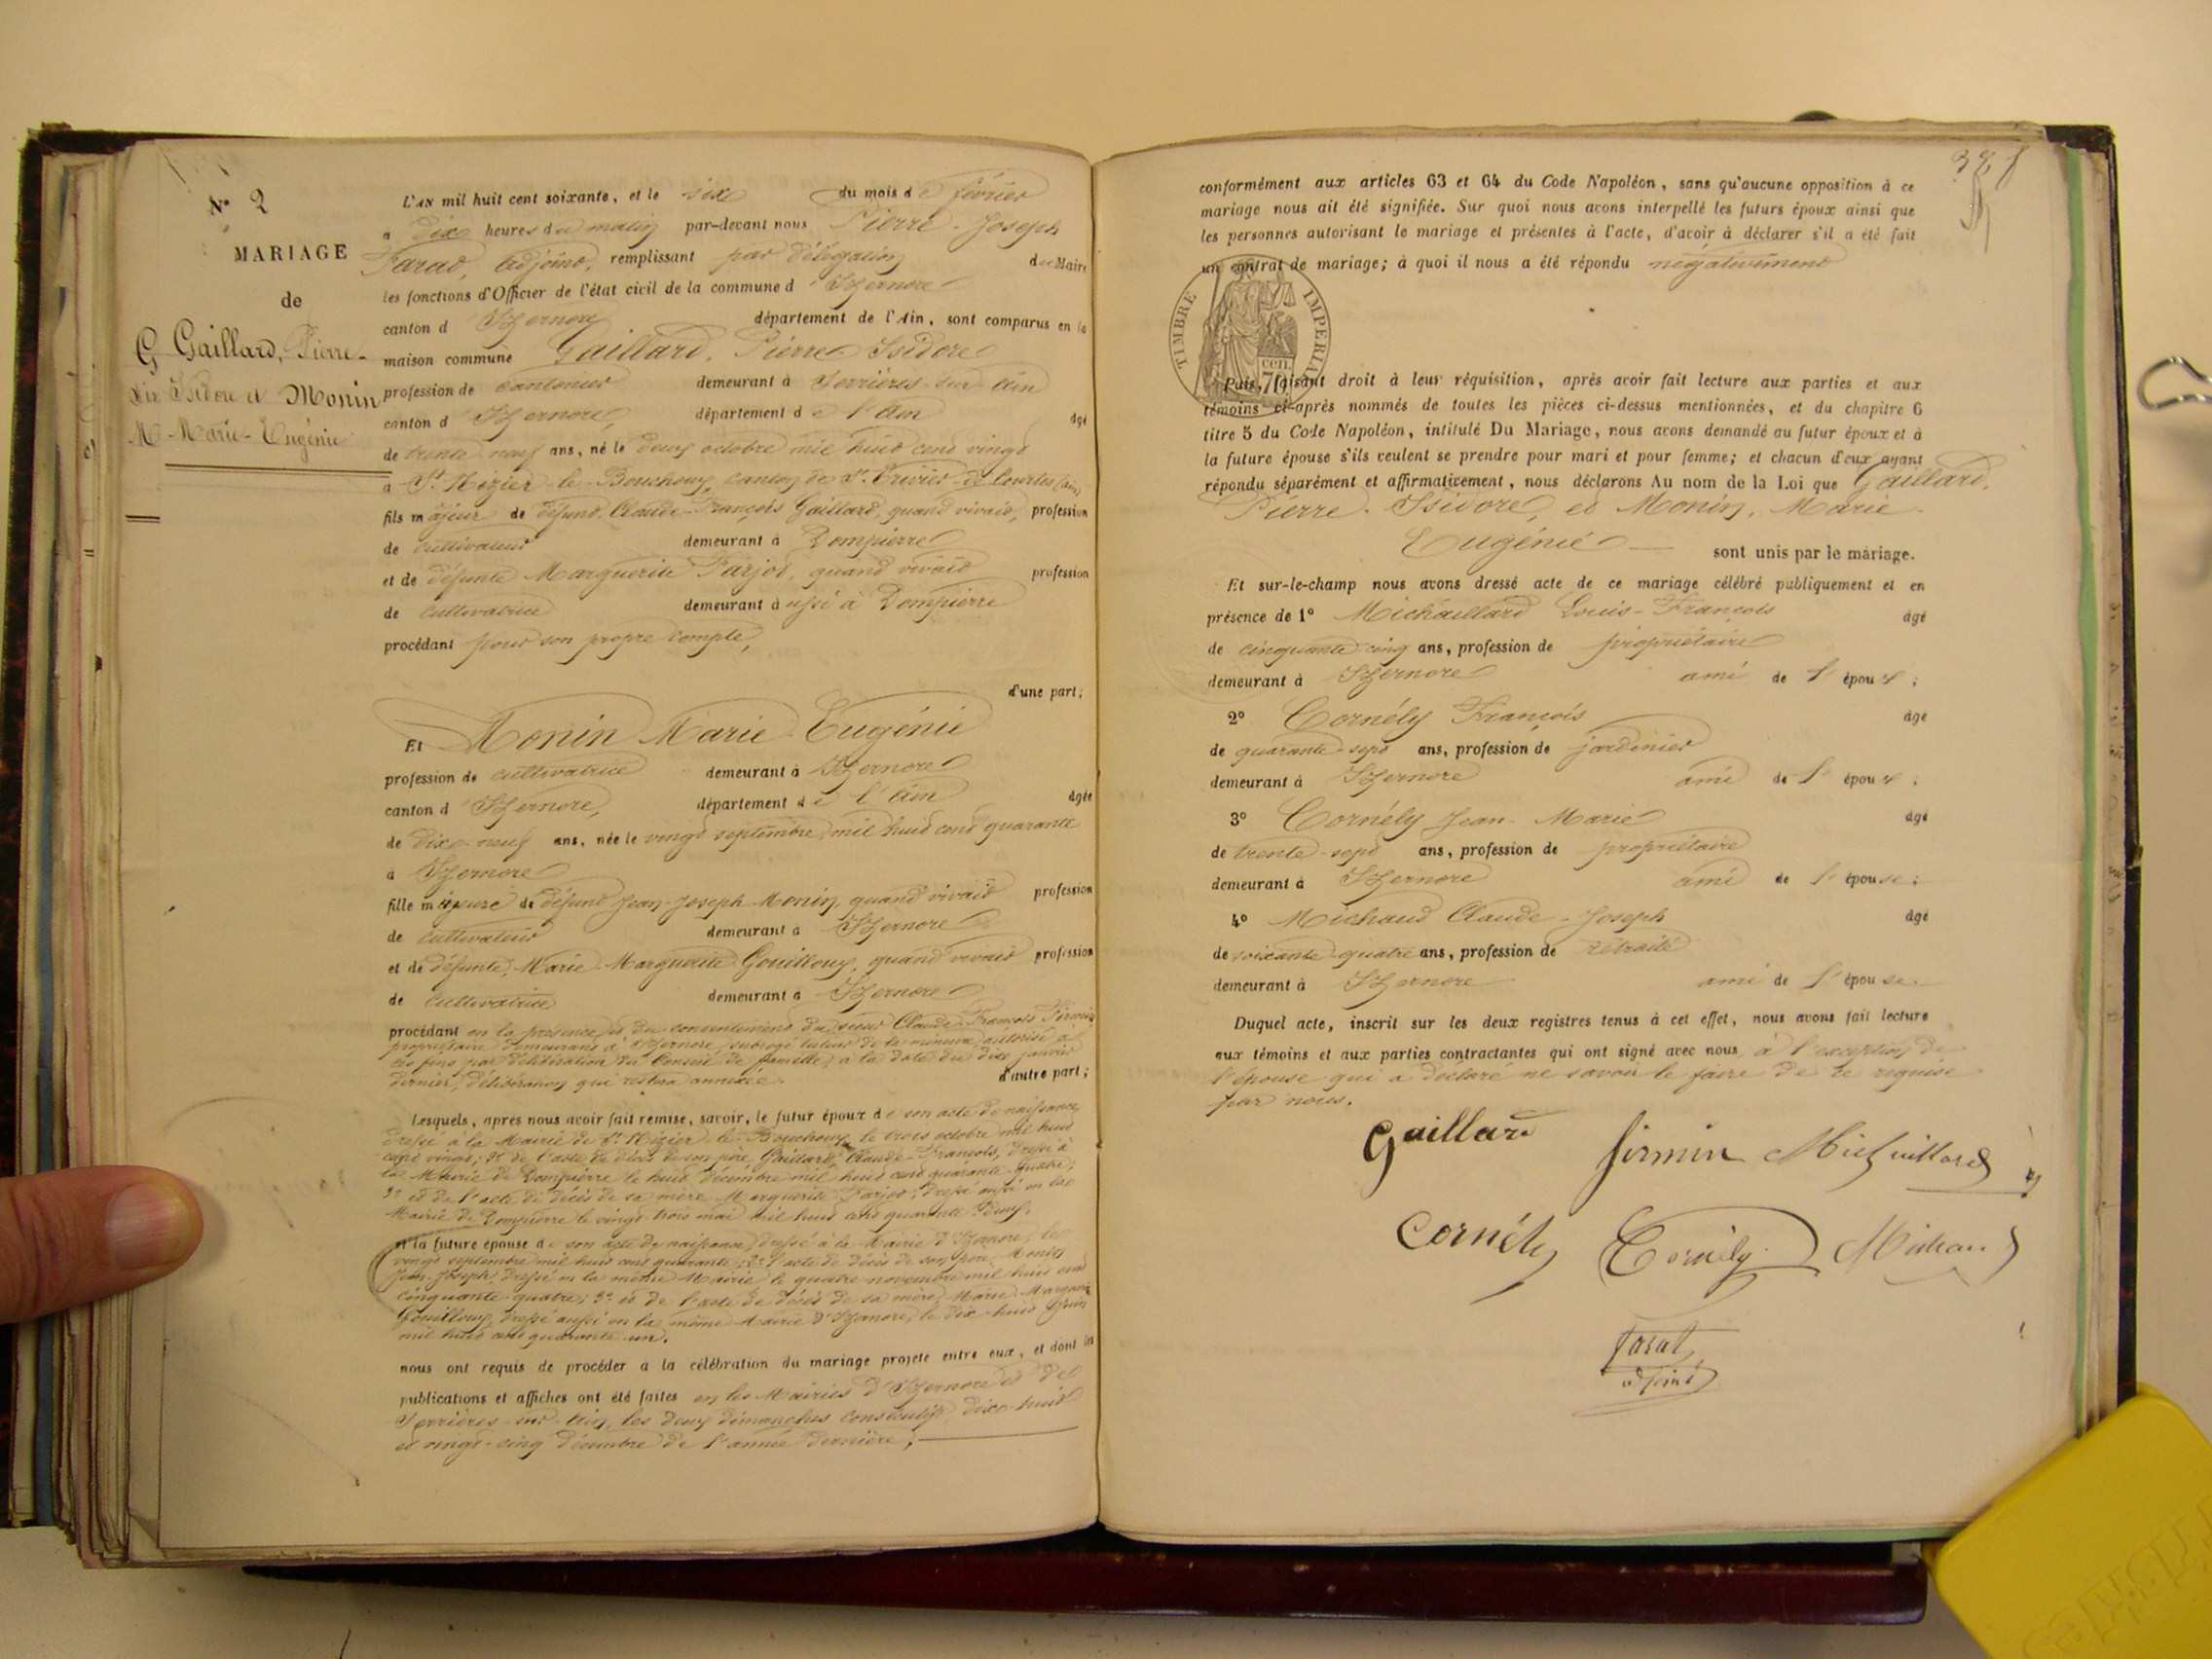 N° 2
MARIAGE
de
G Gaillard, Pierre-
Isidore et Monin
M Marie-Eugénie
L'AN mil huit cent soixante, et le six du mois de février
à dix heures du matin par-devant nous Pierre-Joseph
Farat, adjoint, remplissant par délégation du Maire
les fonctions d'Officier de l'état civil de la commune d'Izernore
canton d'Izernore département de l'Ain, sont comparus en la
maison commune Gaillard, Pierre-Isidore
profession de cantonier demeurant à Serrières-sur-Ain
canton d'Izernore, département de l'Ain âgé
de trente-neuf ans, né le deux octobre mil huit cent vingt
à St Nizier-le-Bouchoux, canton de St Trivier-de-Courtes (Ain)
fils majeur de défunt Claude-François Gaillard, quand vivait, profession
de cultivateur demeurant à Dompierre
et de défunte Marguerite Farjot, quand vivait profession
de cultivatrice demeurant aussi à Dompierre
procédant pour son propre compte,
d'une part;
Et Monin Marie-Eugénie
profession de cultivatrice demeurant à Izernore
canton d'Izernore, département de l'Ain âgée
de dix-neuf ans, née le vingt septembre mil huit cent quarante
à Izernore
fille mineure de défunt Jean-Joseph Monin, quand vivait profession
de cultivateur demeurant à Izernore
et de défunte, Marie-Marguerite Gouilloux, quand vivait profession
de cultivatrice demeurant à Izernore
procédant en la présence et du consentement du sieur Claude-François Firmin
propriétaire demeurant à Izernore, subrogé tuteur de la mineure, autorisé à
ces fins par délibération du Conseil de famille, à la date du dix janvier
dernier, délibération qui restera annexée. d'autre part;
Lesquels, après nous avoir fait remise, savoir, le futur époux de son acte de naissance,
dressé à la Mairie de St Nizier-le-Bouchoux le trois octobre mil huit
cent vingt; 2° de l'acte de décès de son père Gaillard Claude-François, dressé à
la Mairie de Dompierre le huit décembre mil huit cent quarante-quatre;
3° et de l'acte de décès de sa mère Marguerite Farjot, dressé aussi en la
Mairie de Dompierre le vingt-trois mai mil huit cent quarante-deux.
et la future épouse de son acte de naissance, dressé à la Mairie d'Izernore, le
vingt septembre mil huit cent quarante; 2° l'acte de décès de son père Monin
Jean-Joseph, dressé en la même Mairie le quatre novembre mil huit cent
cinquante-quatre; 3° et de l'acte de décès de sa mère, Marie-Marguerite
Gouilloux, dressé aussi en la même Mairie d'Izernore, le dix-huit juin
mil huit cent quarante-un.
nous ont requis de procéder à la célébration du mariage projeté entre eux, et dont les
publications et affiches ont été faites en les Mairies d'Izernore et de
Serrières-sur-Ain, les deux dimanches consécutifs, dix-huit
et vingt-cinq décembre de l'année dernière;
conformément aux articles 63 et 64 du Code Napoléon, sans qu'aucune opposition à ce
mariage nous ait été signifiée. Sur quoi nous avons interpellé les futurs époux ainsi que
les personnes autorisant le mariage et présentes à l'acte, d'avoir à déclarer s'il a été fait
un contrat de mariage; à quoi il nous a été répondu négativement
TIMBRE IMPERIAL
Puis, faisant droit à leur réquisition, après avoir fait lecture aux parties et aux
témoins ci-après nommés de toutes les pièces ci-dessus mentionnées, et du chapitre 6
titre 5 du Code Napoléon, intitulé Du Mariage, nous avons demandé au futur époux et à
la future épouse s'ils veulent se prendre pour mari et pour femme; et chacun d'eux ayant
répondu séparément et affirmativement, nous déclarons Au nom de la Loi que Gaillard,
Pierre-Isidore, et Monin, Marie-
Eugénie sont unis par le mariage.
Et sur-le-champ nous avons dressé acte de ce mariage célébré publiquement et en
présence de 1° Michaillard Louis-François âgé
de cinquante-cinq ans, profession de propriétaire
demeurant à Izernore ami de l'époux;
2° Cornély François âgé
de quarante-sept ans, profession de jardinier
demeurant à Izernore ami de l'époux;
3° Cornély Jean-Marie âgé
de trente-sept ans, profession de propriétaire
demeurant à Izernore ami de l'épouse;
4° Michaud Claude-Joseph âgé
de soixante-quatre ans, profession de retraité
demeurant à Izernore ami de l'épouse.
Duquel acte, inscrit sur les deux registres tenus à cet effet, nous avons fait lecture
aux témoins et aux parties contractantes qui ont signé avec nous, à l'exception de
l'épouse qui a déclaré ne savoir le faire de ce requise
par nous.
Gaillard firmin Michaillard
Cornély Cornély Michaud
Farat
adjoint